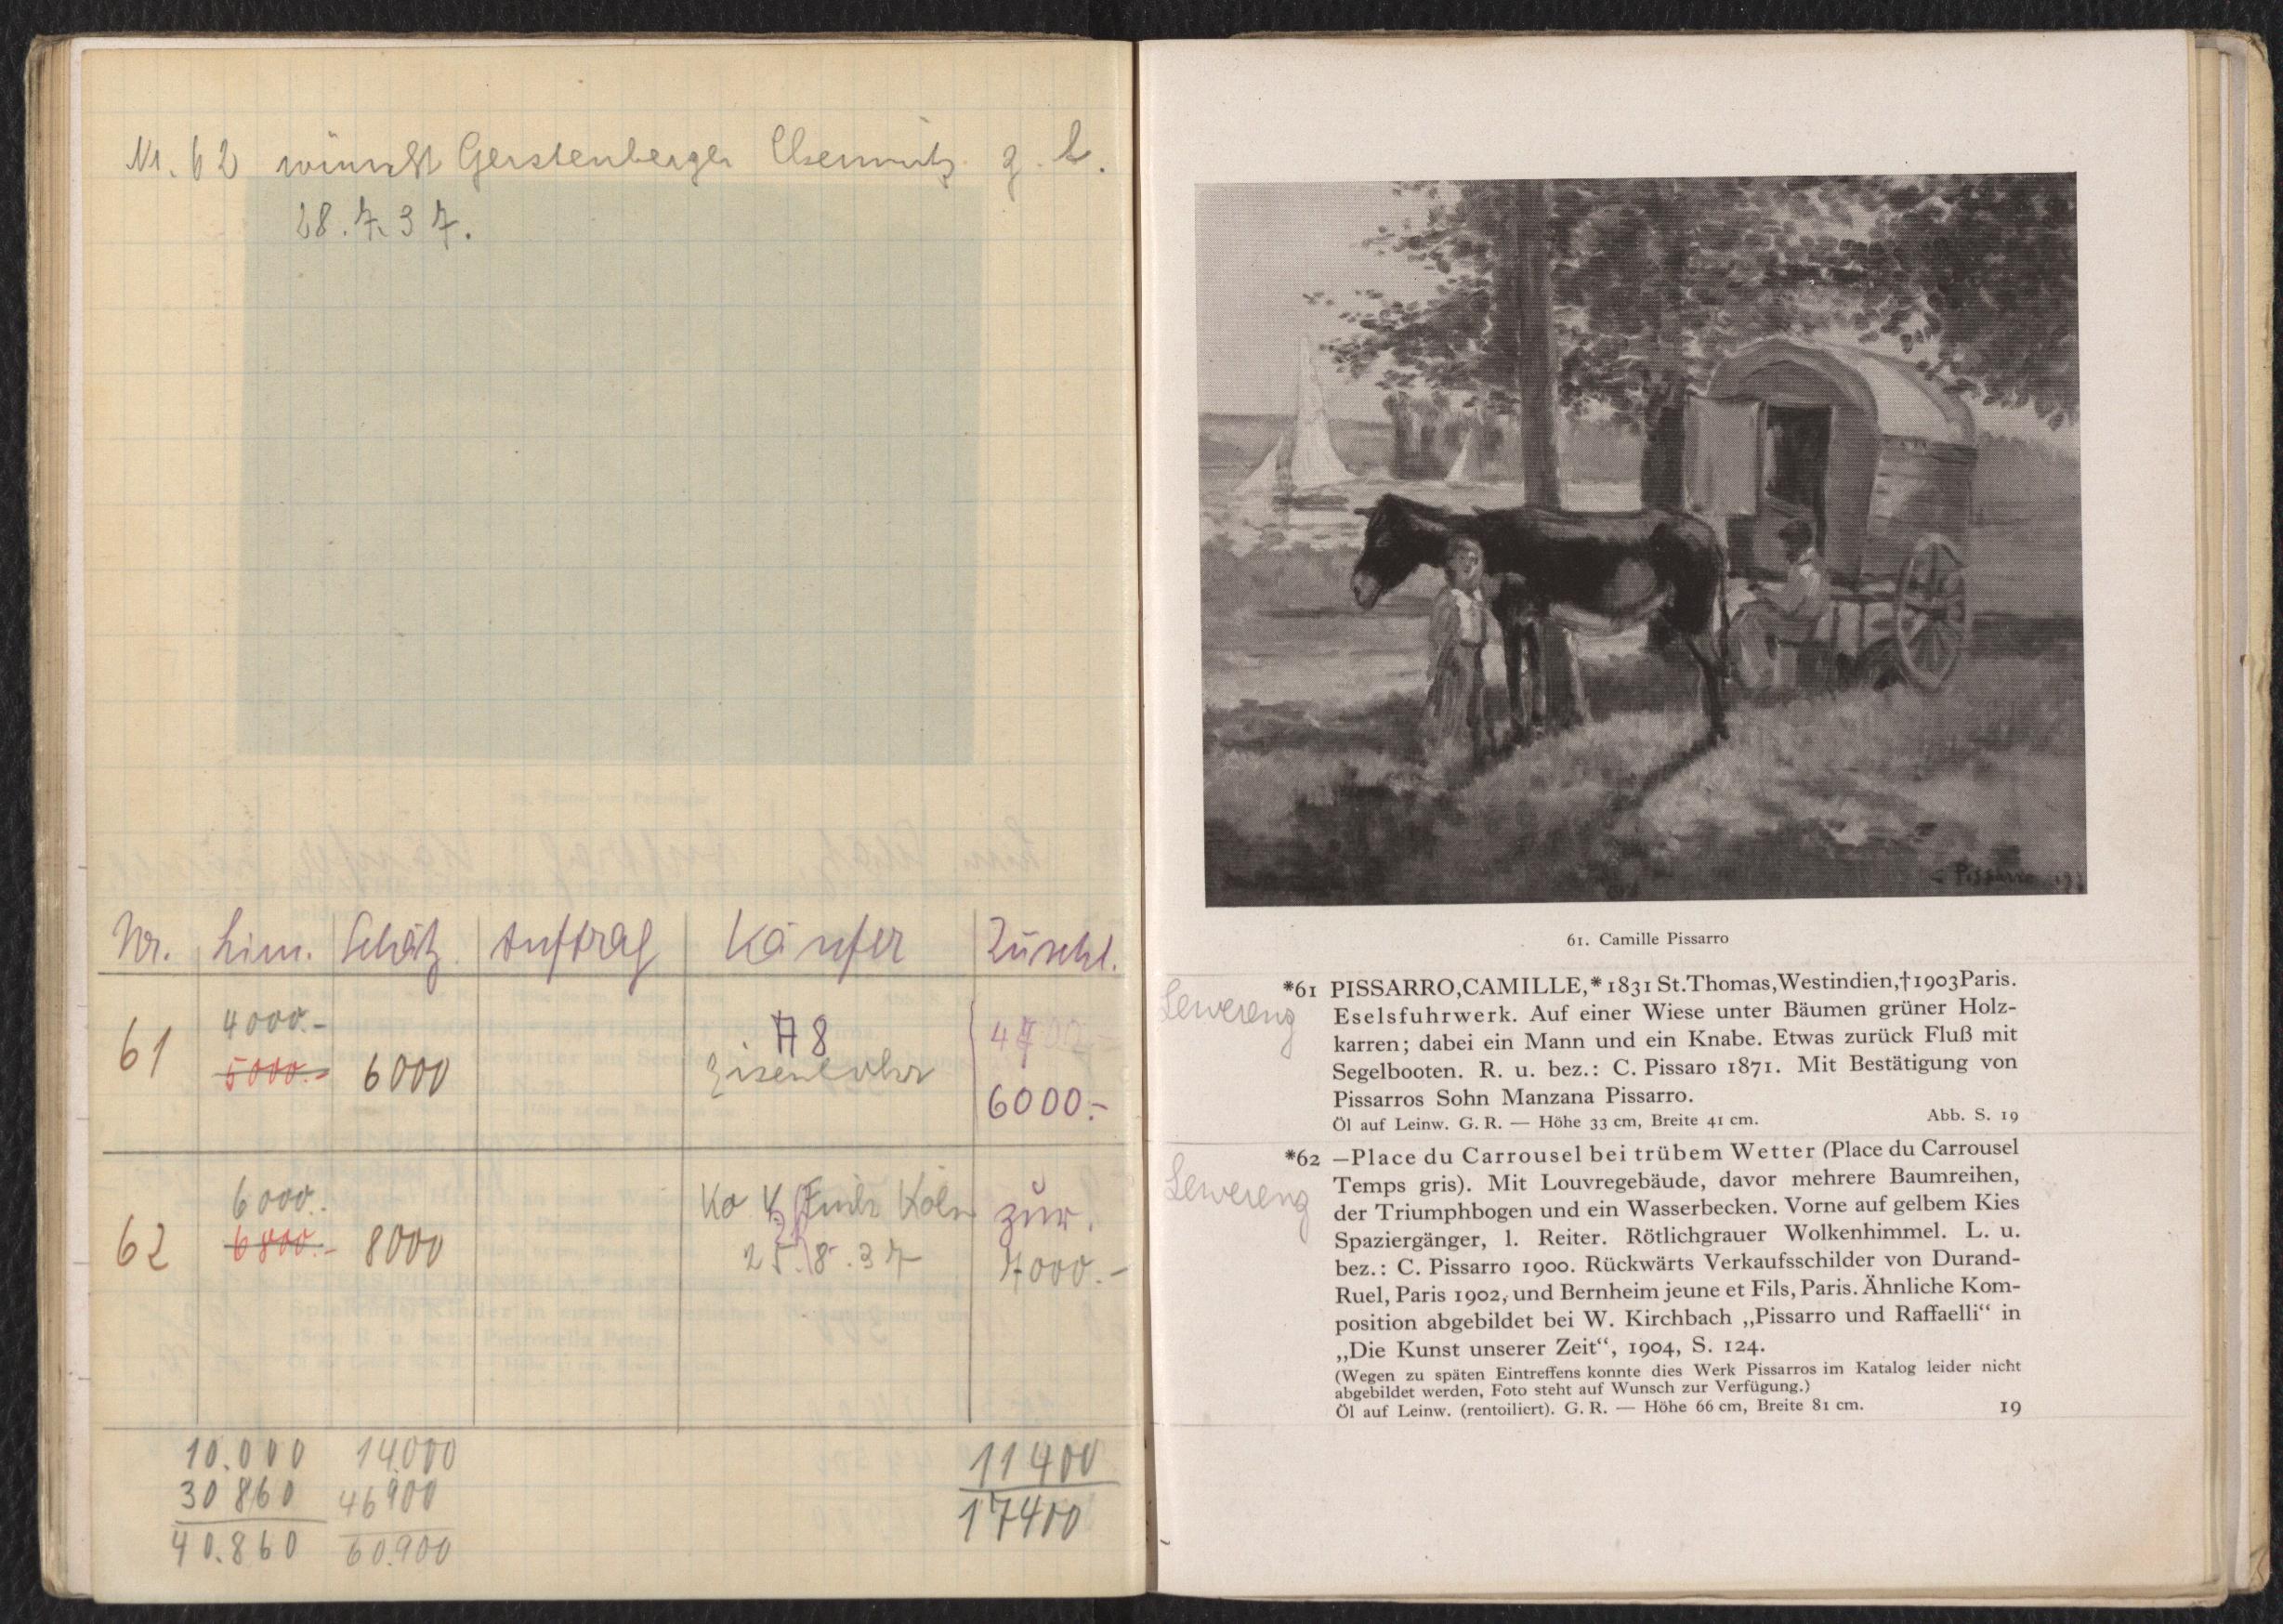 Nr. 62 wünscht Gerstenberger Chemnitz z. k.
28.7.37.
Nr. Lim. Schätz. Auftrag Käufer Zuschl.
4000.-
61 5000.- 6000 A8
Eisenlohr
6000.-
6000.-
62 6800.- 8000 Köln zur.
25.8.37 7000.-
10.000 14000 11400
30860 46900 17400
40.860 60.900
C. Pissarro
61. Camille Pissarro
Lewerenz
*61 PISSARRO, CAMILLE, * 1831 St. Thomas, Westindien, † 1903 Paris.
Eselsfuhrwerk. Auf einer Wiese unter Bäumen grüner Holz-
karren; dabei ein Mann und ein Knabe. Etwas zurück Fluß mit
Segelbooten. R. u. bez.: C. Pissaro 1871. Mit Bestätigung von
Pissarros Sohn Manzana Pissarro.
Öl auf Leinw. G. R. — Höhe 33 cm, Breite 41 cm. Abb. S. 19
Lewerenz
*62 —Place du Carrousel bei trübem Wetter (Place du Carrousel
Temps gris). Mit Louvregebäude, davor mehrere Baumreihen,
der Triumphbogen und ein Wasserbecken. Vorne auf gelbem Kies
Spaziergänger, l. Reiter. Rötlichgrauer Wolkenhimmel. L. u.
bez.: C. Pissarro 1900. Rückwärts Verkaufsschilder von Durand-
Ruel, Paris 1902, und Bernheim jeune et Fils, Paris. Ähnliche Kom-
position abgebildet bei W. Kirchbach „Pissarro und Raffaelli“ in
„Die Kunst unserer Zeit“, 1904, S. 124.
(Wegen zu späten Eintreffens konnte dies Werk Pissarros im Katalog leider nicht
abgebildet werden, Foto steht auf Wunsch zur Verfügung.)
Öl auf Leinw. (rentoiliert). G. R. — Höhe 66 cm, Breite 81 cm.
19